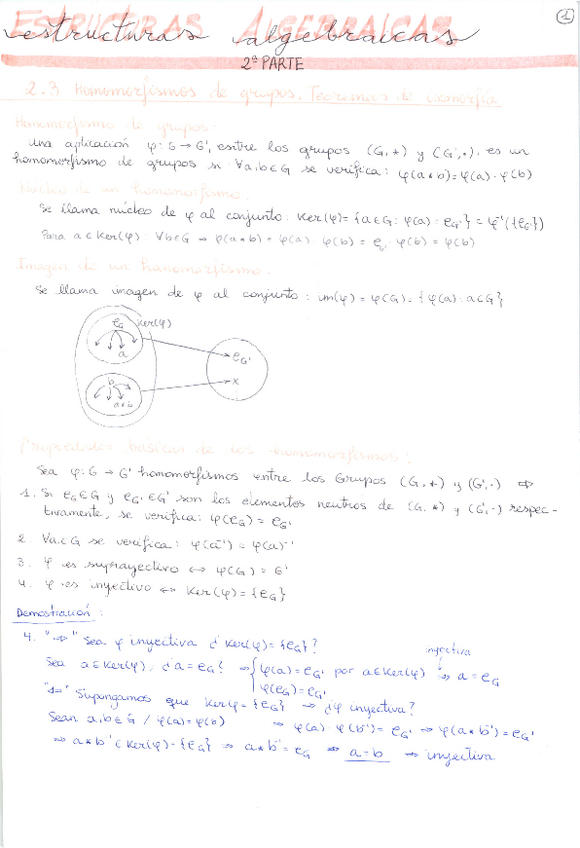 1
ESTRUCTURAS ALGEBRAICAS
estructuras algebraicas
2ª PARTE
2.3 Homomorfismos de grupos. Teoremas de isomorfía
Homomorfismo de grupos:
Una aplicación φ: G → G', entre los grupos (G, *) y (G', ·), es un
homomorfismo de grupos si ∀a,b∈G se verifica: φ(a*b) = φ(a)·φ(b)
Núcleo de un homomorfismo:
Se llama núcleo de φ al conjunto: Ker(φ) = {a∈G: φ(a) = e_G'} = φ⁻¹({e_G'})
Para a∈Ker(φ): ∀b∈G ⇒ φ(a*b) = φ(a)·φ(b) = e_G'·φ(b) = φ(b)
Imagen de un homomorfismo:
Se llama imagen de φ al conjunto: im(φ) = φ(G) = {φ(a): a∈G}
e_G Ker(φ)
a
e_G'
b
x
a*b
Propiedades básicas de los homomorfismos:
Sea φ: G → G' homomorfismos entre los Grupos (G, *) y (G', ·) ⇒
1. Si e_G∈G y e_G'∈G' son los elementos neutros de (G, *) y (G', ·) respec-
tivamente, se verifica: φ(e_G) = e_G'
2. ∀a∈G se verifica: φ(a⁻¹) = φ(a)⁻¹
3. φ es suprayectivo ⇔ φ(G) = G'
4. φ es inyectivo ⇔ Ker(φ) = {e_G}
Demostración:
4. "⇒" Sea φ inyectiva ¿Ker(φ) = {e_G}?
inyectiva
Sea a∈Ker(φ), ¿a = e_G? ⇒ { φ(a) = e_G' por a∈Ker(φ) ⇒ a = e_G
φ(e_G) = e_G'
"⇐" Supongamos que Ker φ = {e_G} ⇒ ¿φ inyectiva?
Sean a,b∈G / φ(a) = φ(b) ⇒ φ(a)·φ(b⁻¹) = e_G' ⇒ φ(a*b⁻¹) = e_G'
⇒ a*b⁻¹∈Ker(φ) = {e_G} ⇒ a*b⁻¹ = e_G ⇒ a = b ⇒ inyectiva